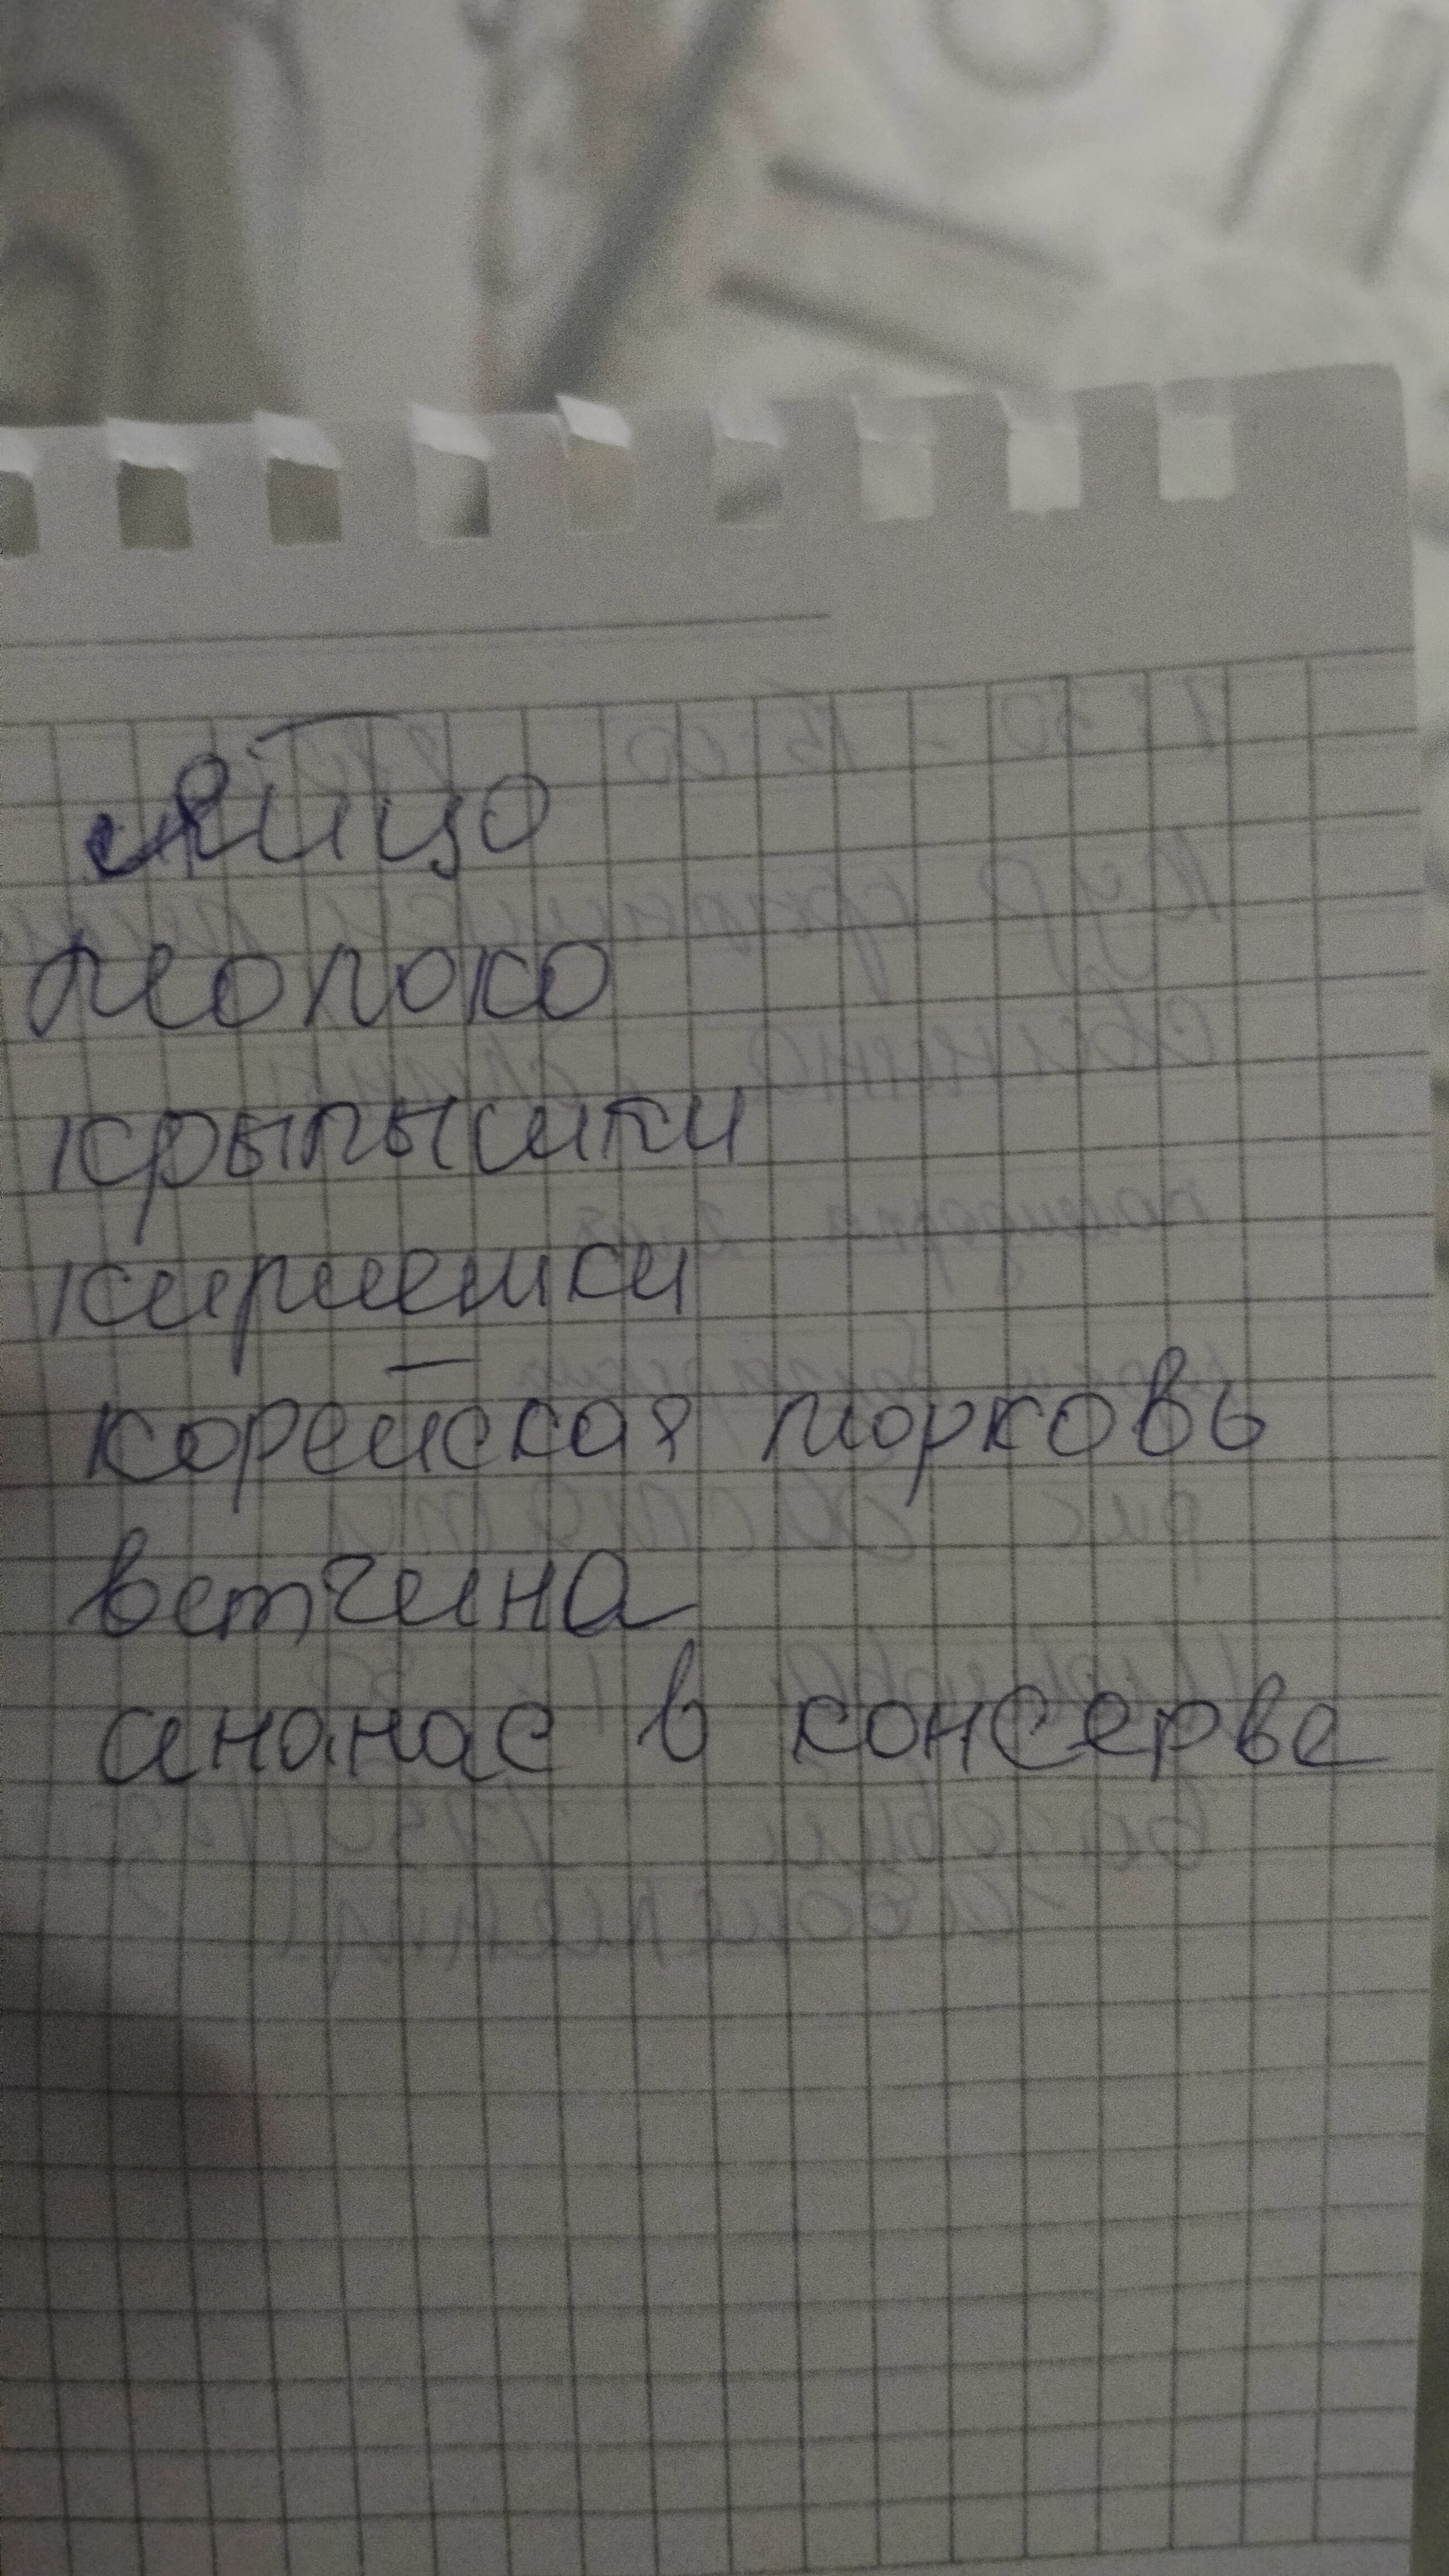 яйцо
молоко
крылышки
кириешки
корейская морковь
ветчина
ананас в консерве